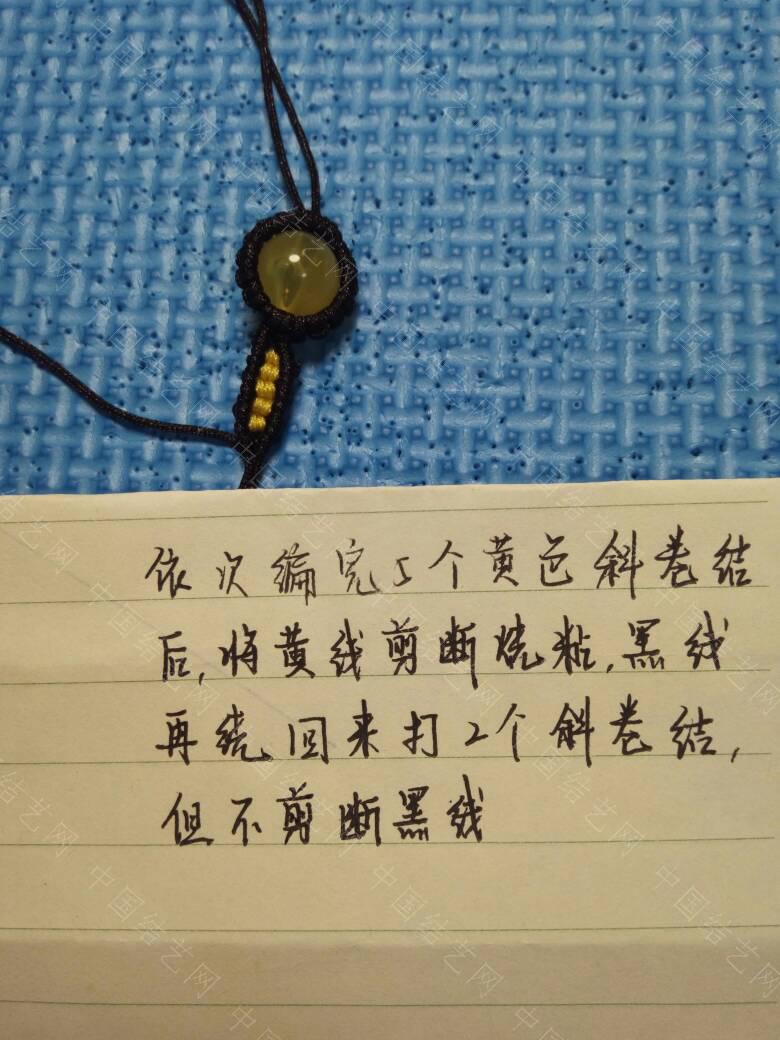 依次编完5个黄色斜卷结
后,将黄线剪断烧粘,黑线
再绕回来打2个斜卷结,
但不剪断黑线
中国结艺网